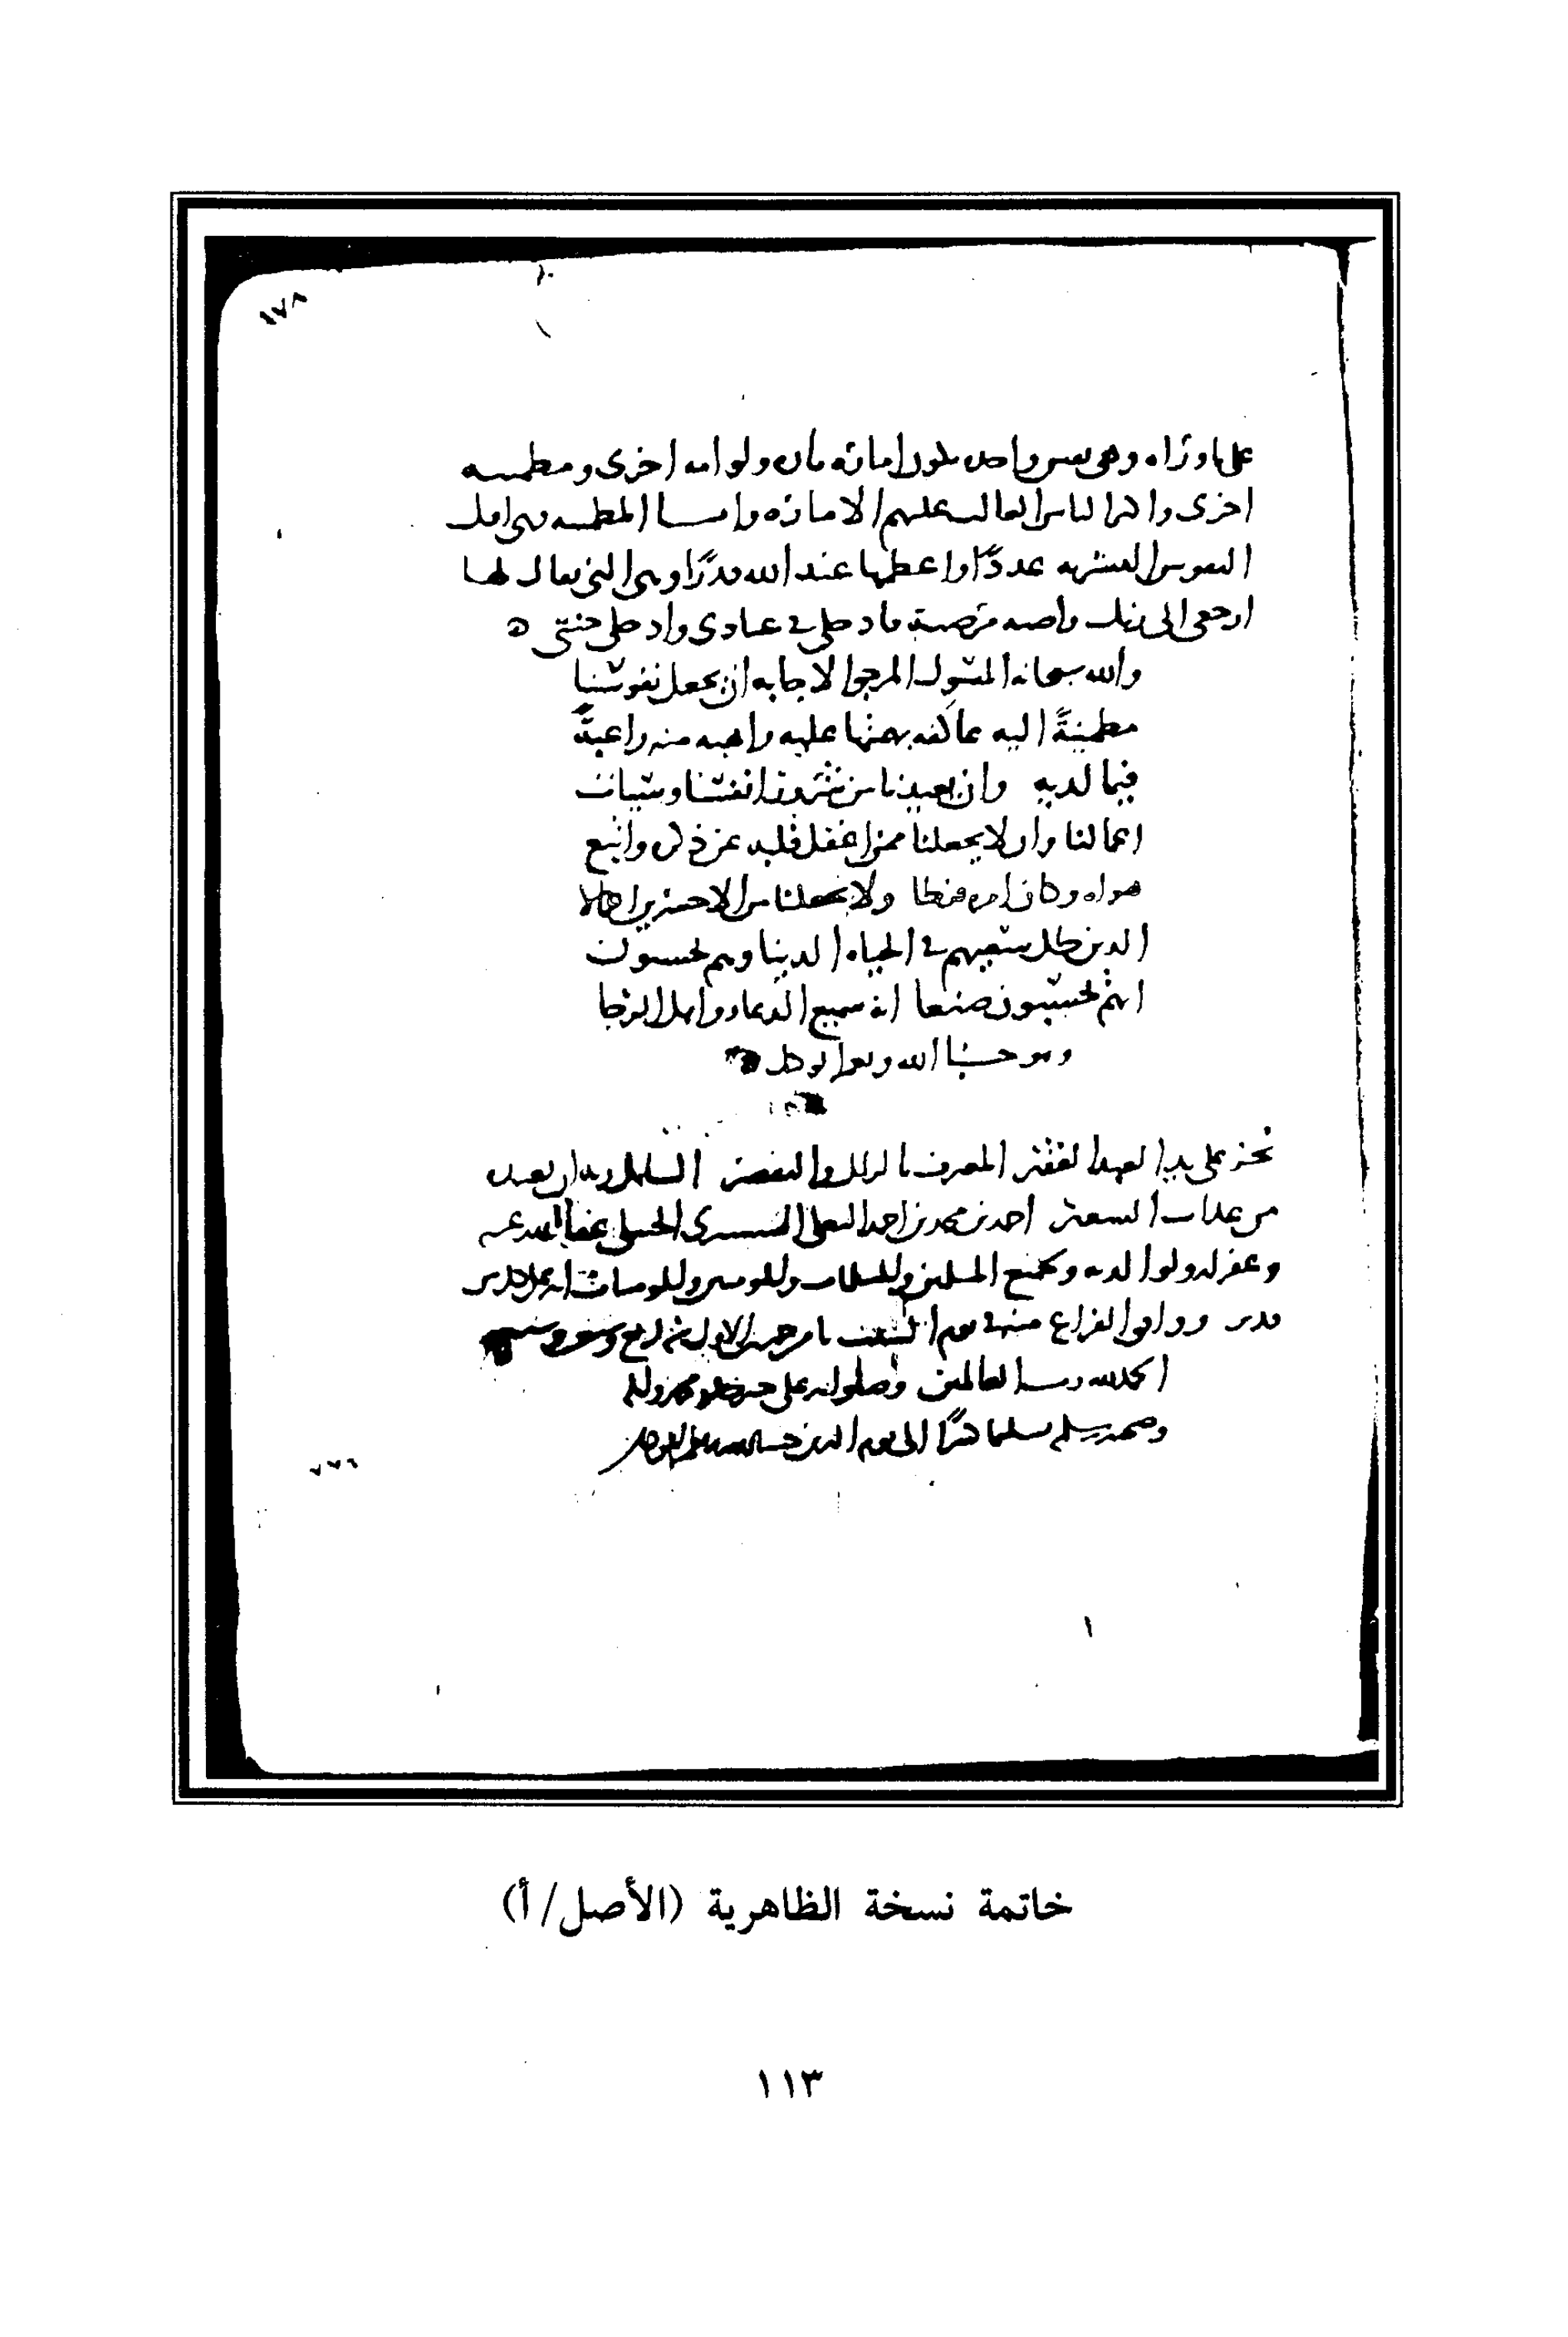 ١٧٨
على ما وراءه وهي نفس واحدة تكون امارة تارة ولوامه اخرى ومطمينه
اخرى واكثر الناس الغالب عليهم الامارة واما المطمينه فهي اقل
النفوس البشريه عددًا واعظمها عند الله قدرًا وهي التي يقال لها
ارجعي الى ربك راضيه مرضية فادخلي في عبادي وادخلي جنتي
والله سبحانه المسئول المرجو الاجابه ان يجعل نفوسنا
مطمئنةً اليه عاكفه بهمتها عليه راهبه منه راغبةً
فيما لديه وان يعيذنا من شرور انفسنا وسيات
اعمالنا وان لا يجعلنا ممن اغفل قلبه عن ذكره واتبع
هواه وكان امره فرطا ولا يجعلنا من الاخسرين اعمالا
الذين ضل سعيهم في الحياه الدنيا وهم يحسبون
انهم يحسنون صنعا انه سميع الدعاء واهل الرجا
وهو حسبنا الله ونعم الوكيل
نجز على يد العبد الفقير المعترف بالزلل والتقصير السائل ربه ان يعيذه
من عذاب السعير احمد بن محمد بن احمد الحنبلي عفا الله عنه
وغفر له ولوالديه ولجميع المسلمين والمسلمات والمومنين والمومنات انه على كل شي
قدير ووافق الفراغ منه في يوم السبت الاول سنة اربع وسبعين وسبعمايه
الحمد لله رب العالمين وصلواته على خير خلقه محمد واله
وصحبه وسلم تسليما كثيرًا الى يوم الدين حسبنا الله ونعم الوكيل
٧٧٤
خاتمة نسخة الظاهرية (الأصل/أ)
١١٣